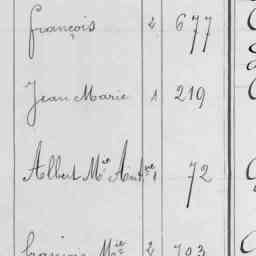 François 2 677
Jean Marie 1 219
Albert Mie 1 72
Mie 2 703